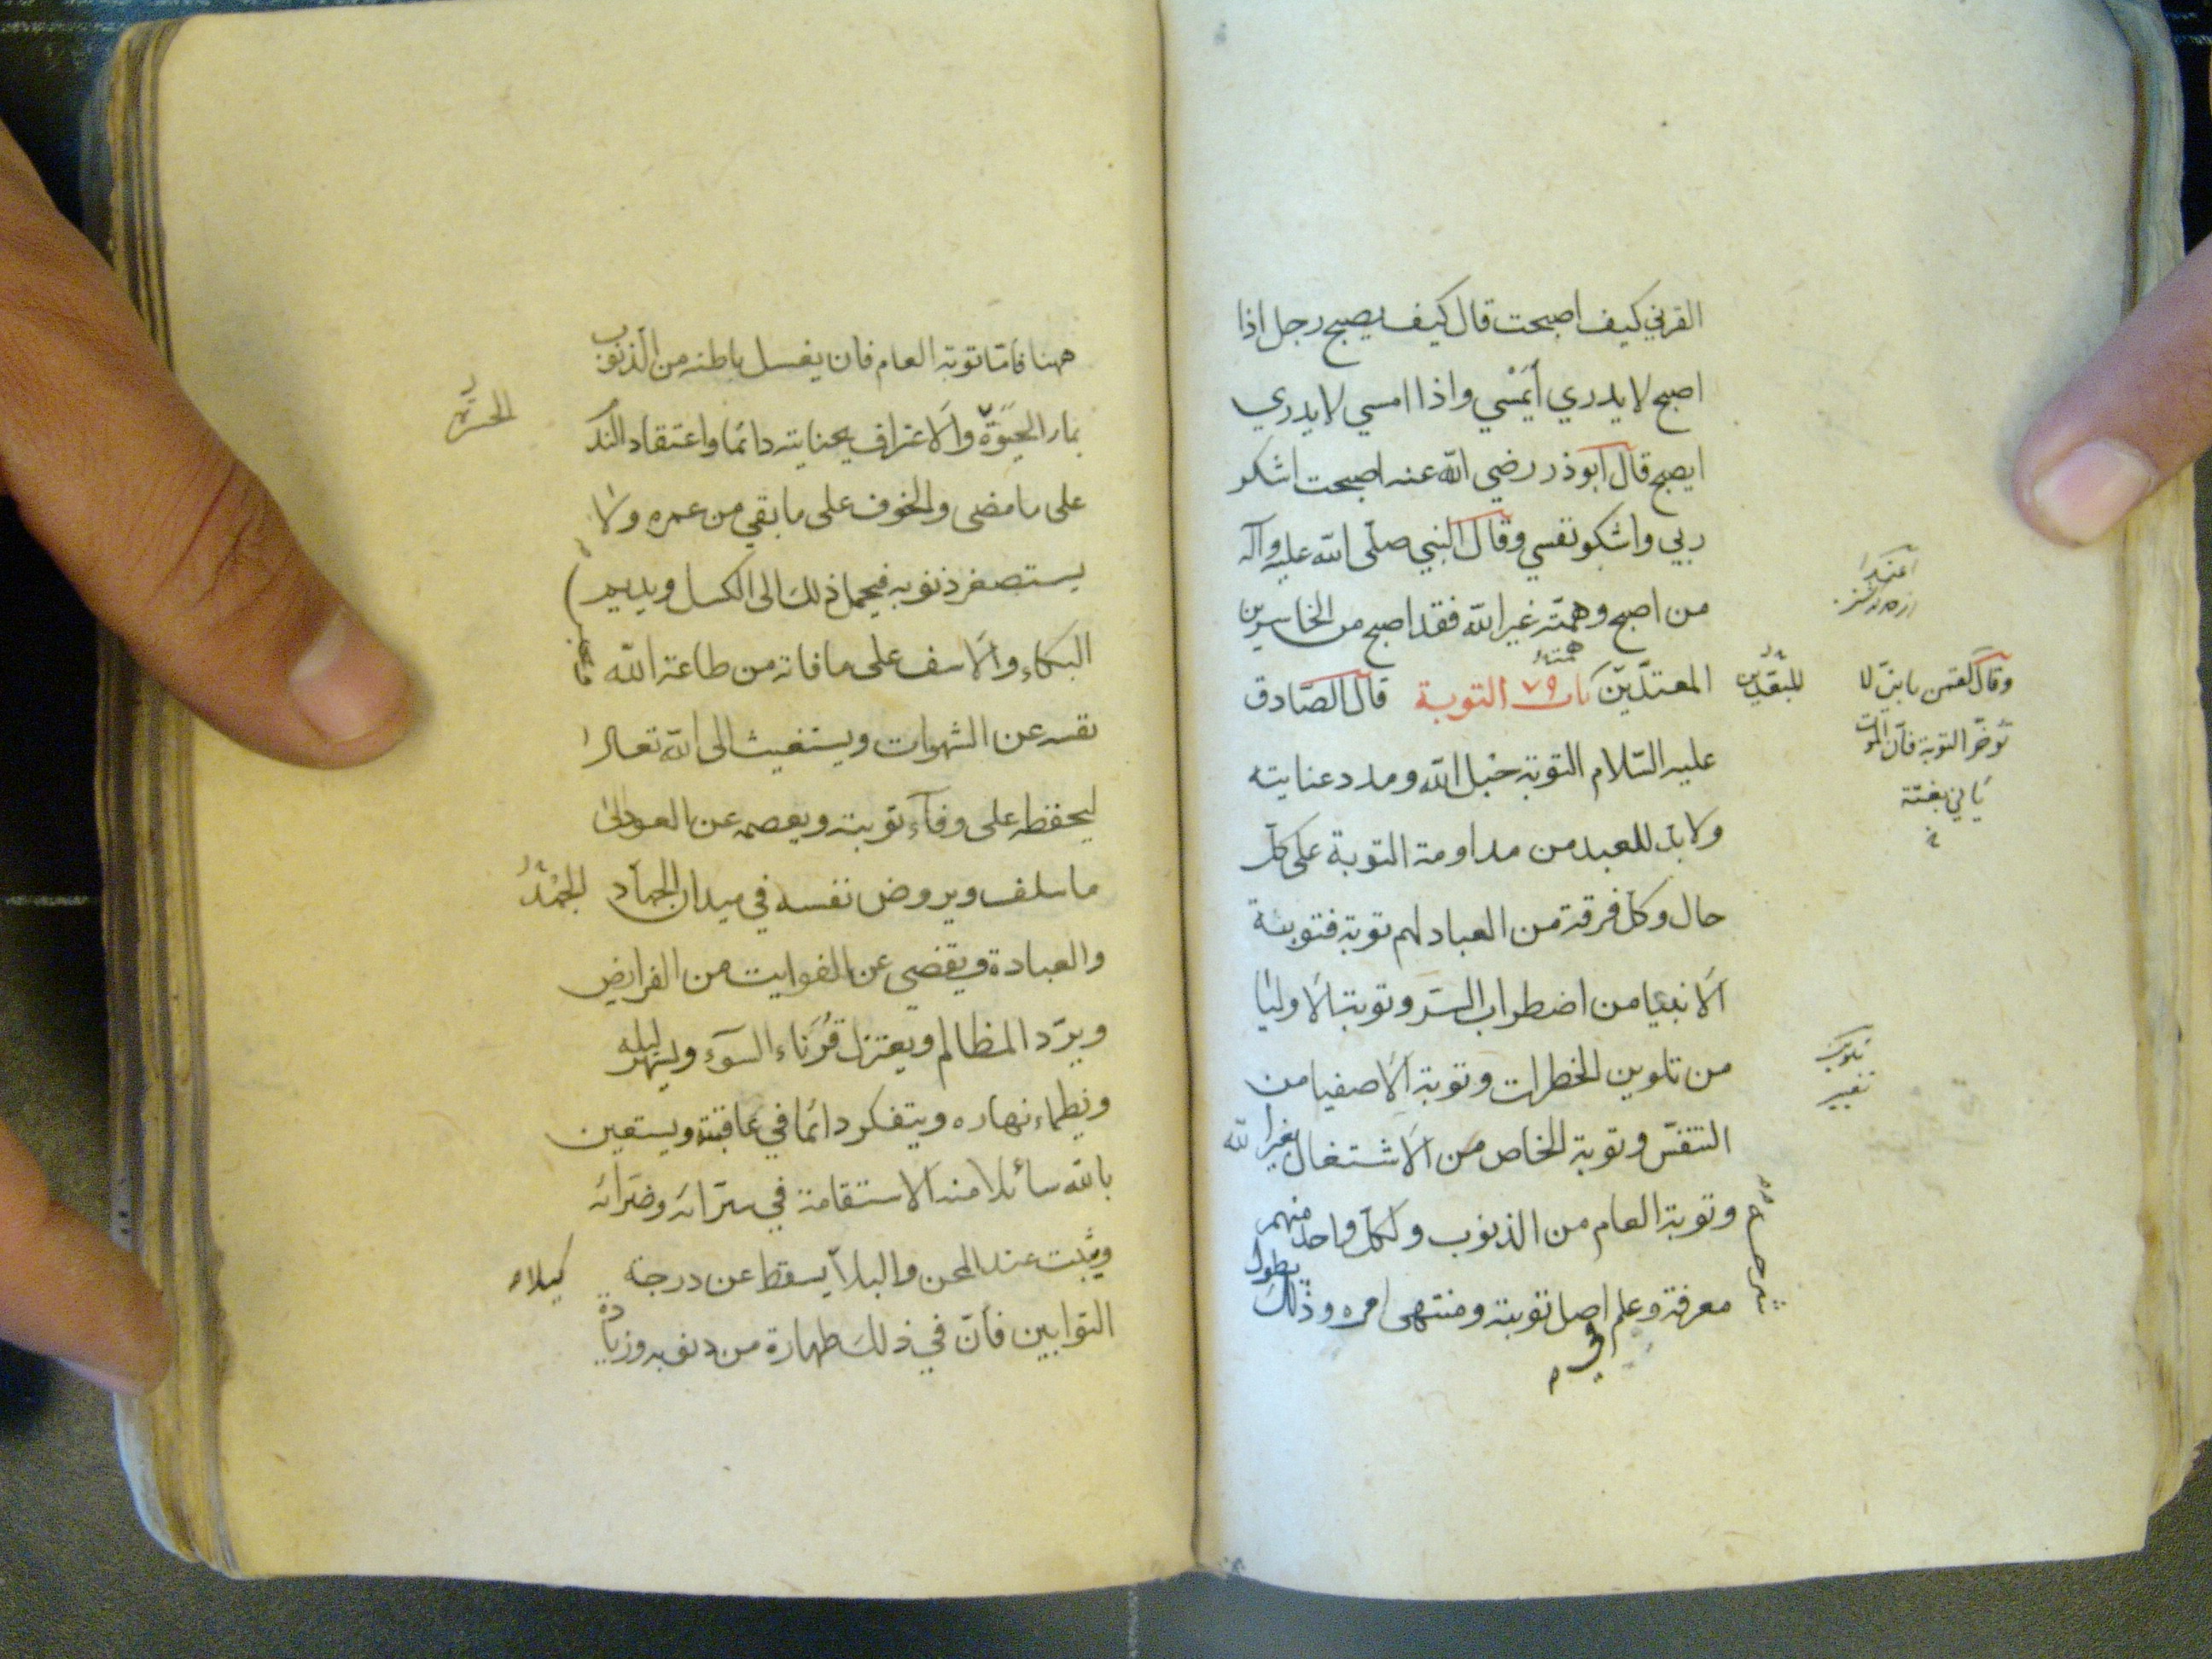 القرني كيف اصبحت قال كيف يصبح رجل اذا
اصبح لا يدري أيمْسي واذا امسي لا يدري
ايصبح قال ابوذر رضي الله عنه اصبحت اشكر
ربي واشكو نفسي وقال النبي صلى الله عليه وآله
من اصبح وهمّته غير الله فقد اصبح من الخاسرين
المعتدّين باب ٧٩ التوبة قال الصّادق
عليه السّلام التوبة حبل الله ومدد عنايته
ولا بدّ للعبد من مداومة التوبة على كلّ
حال وكلّ فرقة من العباد لهم توبة فتوبة
الانبيا من اضطراب السّر وتوبة الاوليا
من تلوين الخطرات وتوبة الاصفيا من
التنفّس وتوبة الخاص من الاشتغال بغير الله
وتوبة العام من الذنوب ولكلّ واحد منهم
معرفة وعلم في اصل توبته ومنتهى امره وذلك يطول
شرحه
وقال لقمن يا بنيّ لا
تؤخّر التوبة فانّ الموت
يأتي بغتة
تلوين
تغيير
ههنا فامّا توبة العام فان يغسل باطنه من الذنوب
بماء الحيوة والاعتراف بجنايته دائما واعتقاد الندم
على ما مضى والخوف على ما بقي من عمره ولا
يستصغر ذنوبه فيحمله ذلك الى الكسل ويديم
البكاء والاسف على مافاته من طاعة الله
نفسه عن الشهوات ويستغيث الى الله تعالى
ليحفظه على وفآء توبته ويعصمه عن العود الى
ما سلف ويروض نفسه في ميدان الجهاد
والعبادة ويقضي عن الفوايت من الفرايض
ويردّ المظالم ويعتزل قُرَناء السوء ويسهر ليله
ويظماء نهاره ويتفكر دائما في عاقبته ويستعين
بالله سائلا منه الاستقامة في سرّائه وضرّائه
ويثبت عند المحن والبلا يسقط عن درجة كيلا
التوابين فانّ في ذلك طهارة من ذنوبه وزيادة